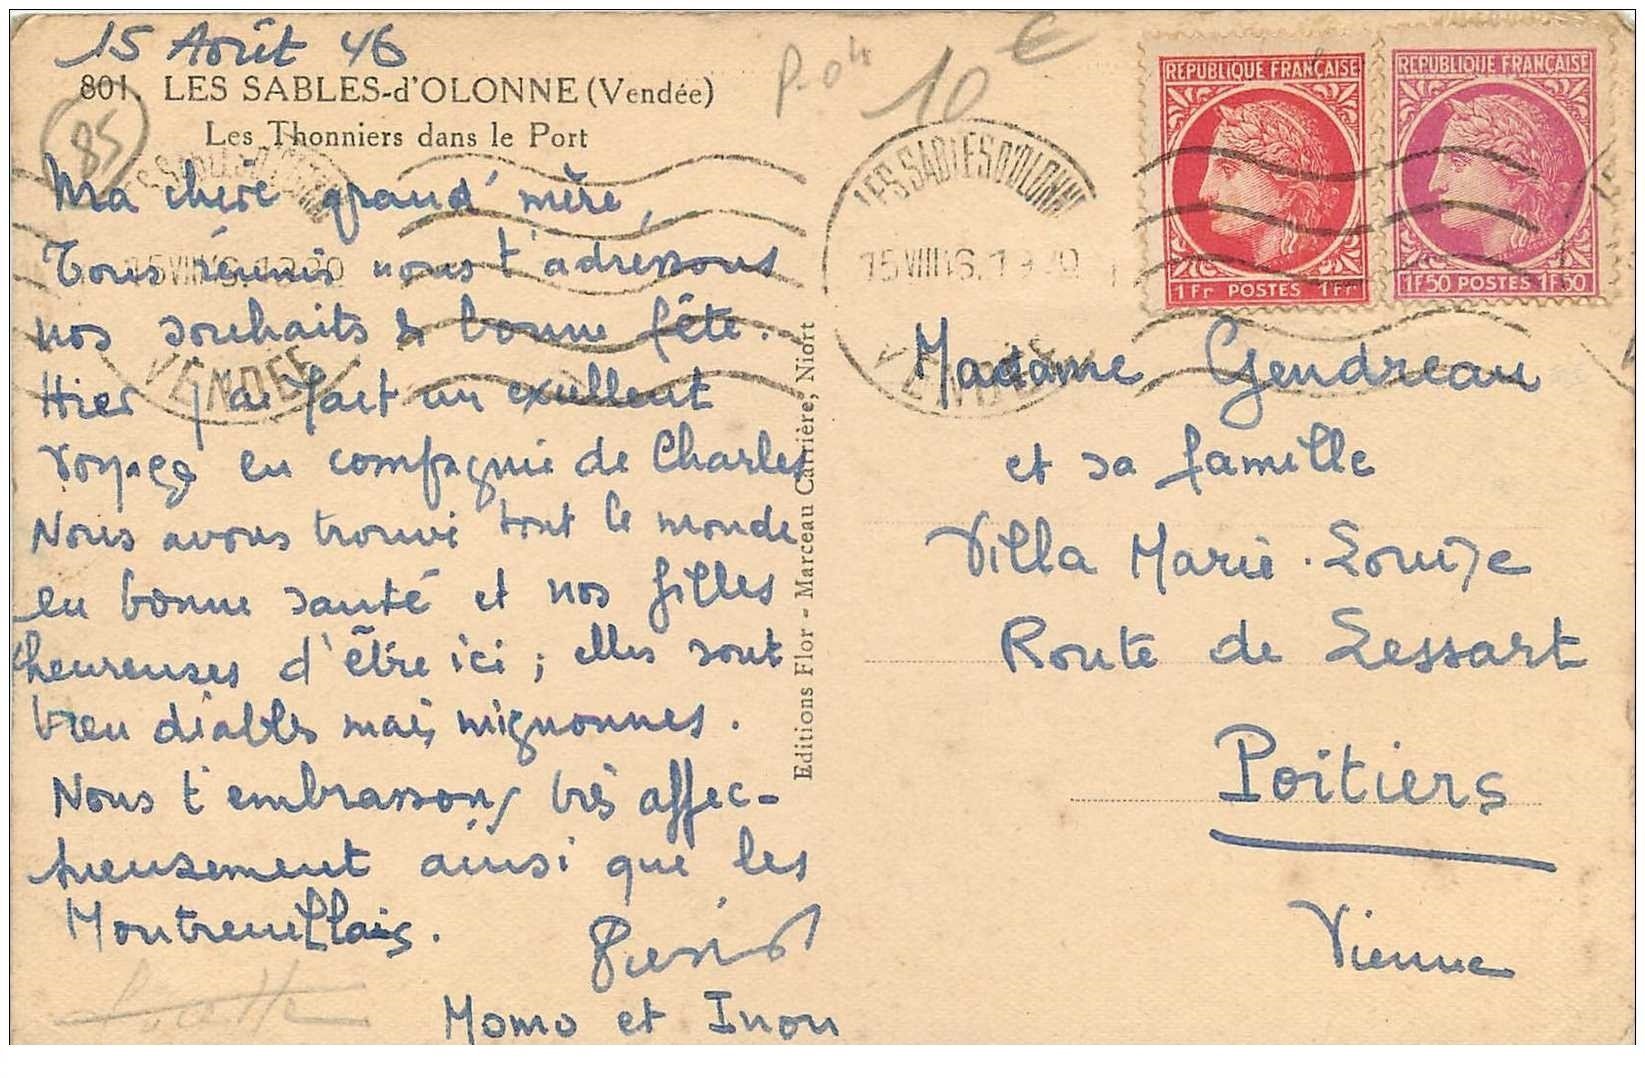 15 Août 46
801. LES SABLES-d'OLONNE (Vendée)
Les Thonniers dans le Port
85
10 €
Ma chère grand' mère,
Tous réunis nous t'adressons
nos souhaits & bonne fête.
Hier j'ai fait un excellent
voyage en compagnie de Charles
Nous avons trouvé tout le monde
en bonne santé et nos filles
heureuses d'être ici ; elles sont
bien diables mais mignonnes.
Nous t'embrassons très affec-
tueusement ainsi que les
Montreuillais.
Momo et
Editions Flor - Marceau Carrière, Niort
LES SABLES D'OLONNE
15 VIII 46
VENDEE
LES SABLES D'OLONNE
15 VIII 46
VENDEE
REPUBLIQUE FRANÇAISE
1 Fr POSTES 1 Fr
REPUBLIQUE FRANÇAISE
1F50 POSTES 1F50
Madame Gendreau
et sa famille
Villa Marie-Louise
Route de Lessart
Poitiers
Vienne